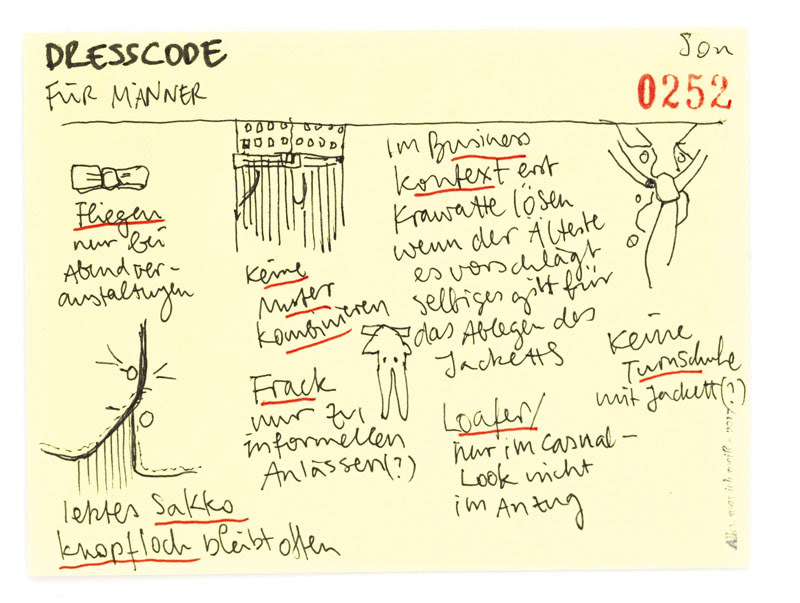 DRESSCODE
FÜR MÄNNER
Son
0252
Fliegen
nur bei
Abendver-
anstaltungen
Keine
Muster
kombinieren
im Business
Kontext erst
Krawatte lösen
wenn der Älteste
es vorschlägt
selbiges gilt für
das Ablegen des
Jacketts
Keine
Turnschuhe
mit Jackett(?)
Frack
nur zu
informellen
Anlässen(?)
Loafer/
nur im Casual-
Look nicht
im Anzug
letztes Sakko
knopfloch bleibt offen